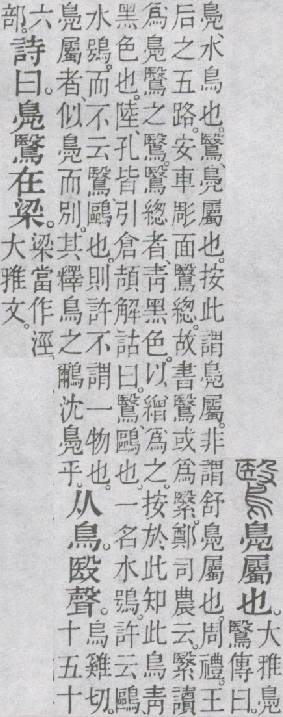 鷖鳧屬也。大雅鳧
鷖傳曰。
鳧、水鳥也。鷖、鳧屬也。按此謂鳧屬。非謂舒鳧屬也。周禮王
后之五路。安車彫面鷖總。故書鷖或爲繄。鄭司農云。繄讀
爲鳧鷖之鷖。鷖總者、靑黑色。以繒爲之。按於此知此鳥靑
黑色也。陸、孔皆引倉頡解詁曰。鷖、鷗也。一名水鴞。許云鷗、
水鴞。而不云鷖鷗也。則許不謂一物也。
鳧屬者、似鳧而別。其釋鳥之鸍沈鳧乎。
从鳥。殹聲。烏雞切。
十五十
六
部。
詩曰。鳧鷖在梁。梁當作涇。
大雅文。